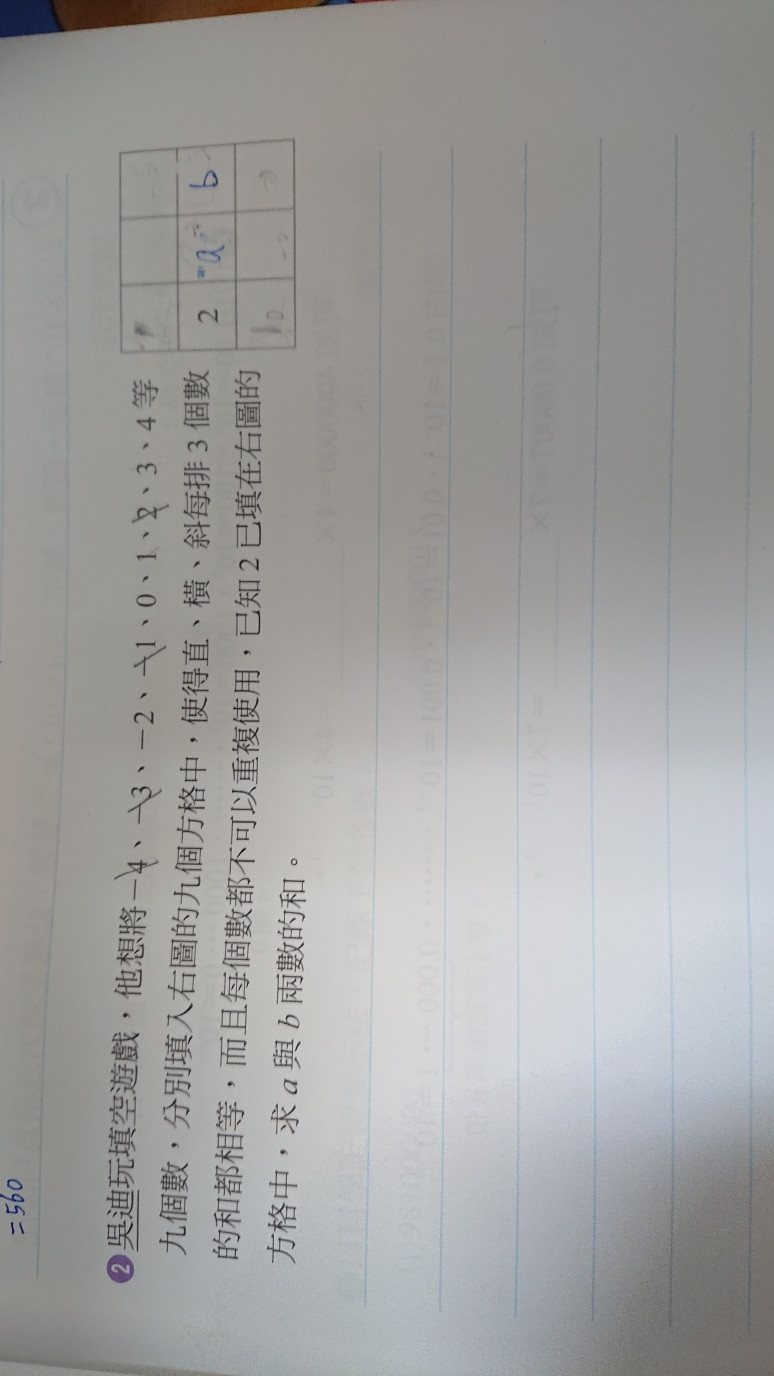 =560
2 吳迪玩填空遊戲，他想將−4、−3、−2、−1、0、1、2、3、4等
九個數，分別填入右圖的九個方格中，使得直、橫、斜每排3個數
的和都相等，而且每個數都不可以重複使用，已知2已填在右圖的
方格中，求a與b兩數的和。
2 a b